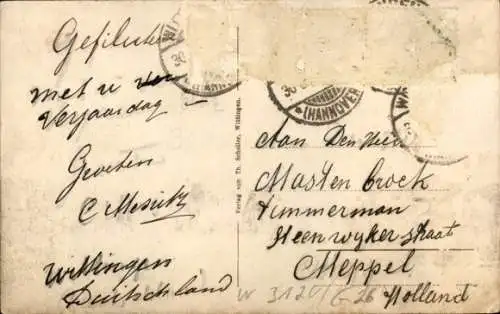 Gefilicite
met u
Verjaardag
Groeten
C Mesritz
Wittingen
Duitschland
Verlag von Th. Schäller, Wittingen.
(HANNOVER)
Aan Den Heer
Mastenbroek
timmerman
Heerenwyker straat
Meppel
Holland
W 3120